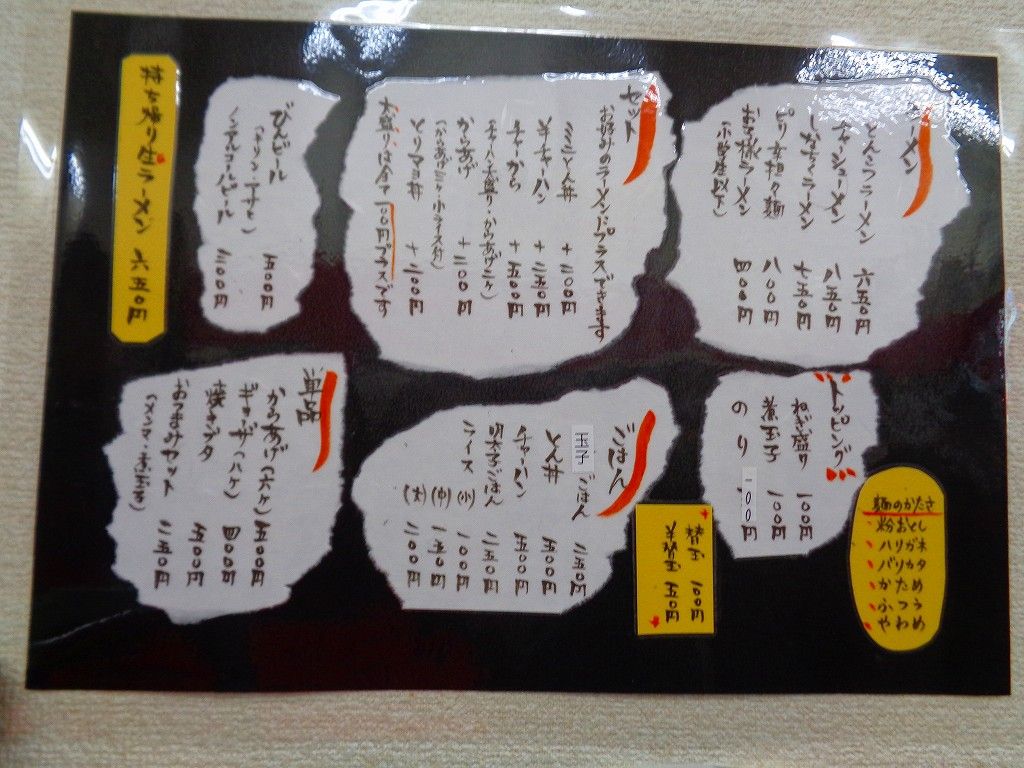 ラーメン
とんこつラーメン 六五〇円
チャーシューメン 八五〇円
しなちくラーメン 七五〇円
ピリ辛担々麺 八〇〇円
お子様ラーメン 四〇〇円
(小学生以下)
セット
お好みのラーメンにプラスでできます
ミニとん丼 +三〇〇円
半チャーハン +三五〇円
チャーから +五〇〇円
(チャーハン大盛り・からあげ二ケ)
からあげ +三〇〇円
(からあげ三ケ・小ライス付)
とりマヨ丼 +三〇〇円
大盛りは全て一〇〇円プラスです
びんビール 五〇〇円
(キリン・アサヒ)
ノンアルコールビール 三〇〇円
持ち帰り生ラーメン 六五〇円
トッピング
ねぎ盛り 一〇〇円
煮玉子 一〇〇円
のり 一〇〇円
麺のかたさ
粉おとし
ハリガネ
バリカタ
かため
ふつう
やわめ
替玉 一〇〇円
半替玉 五〇円
ごはん
玉子ごはん 二五〇円
とん丼 五〇〇円
チャーハン 五〇〇円
明太子ごはん 二五〇円
ライス (小) 一〇〇円
(中) 一五〇円
(大) 二〇〇円
単品
からあげ(六ケ) 五〇〇円
ギョーザ(八ケ) 四〇〇円
焼きブタ 五〇〇円
おつまみセット 三五〇円
(メンマ・煮玉子)